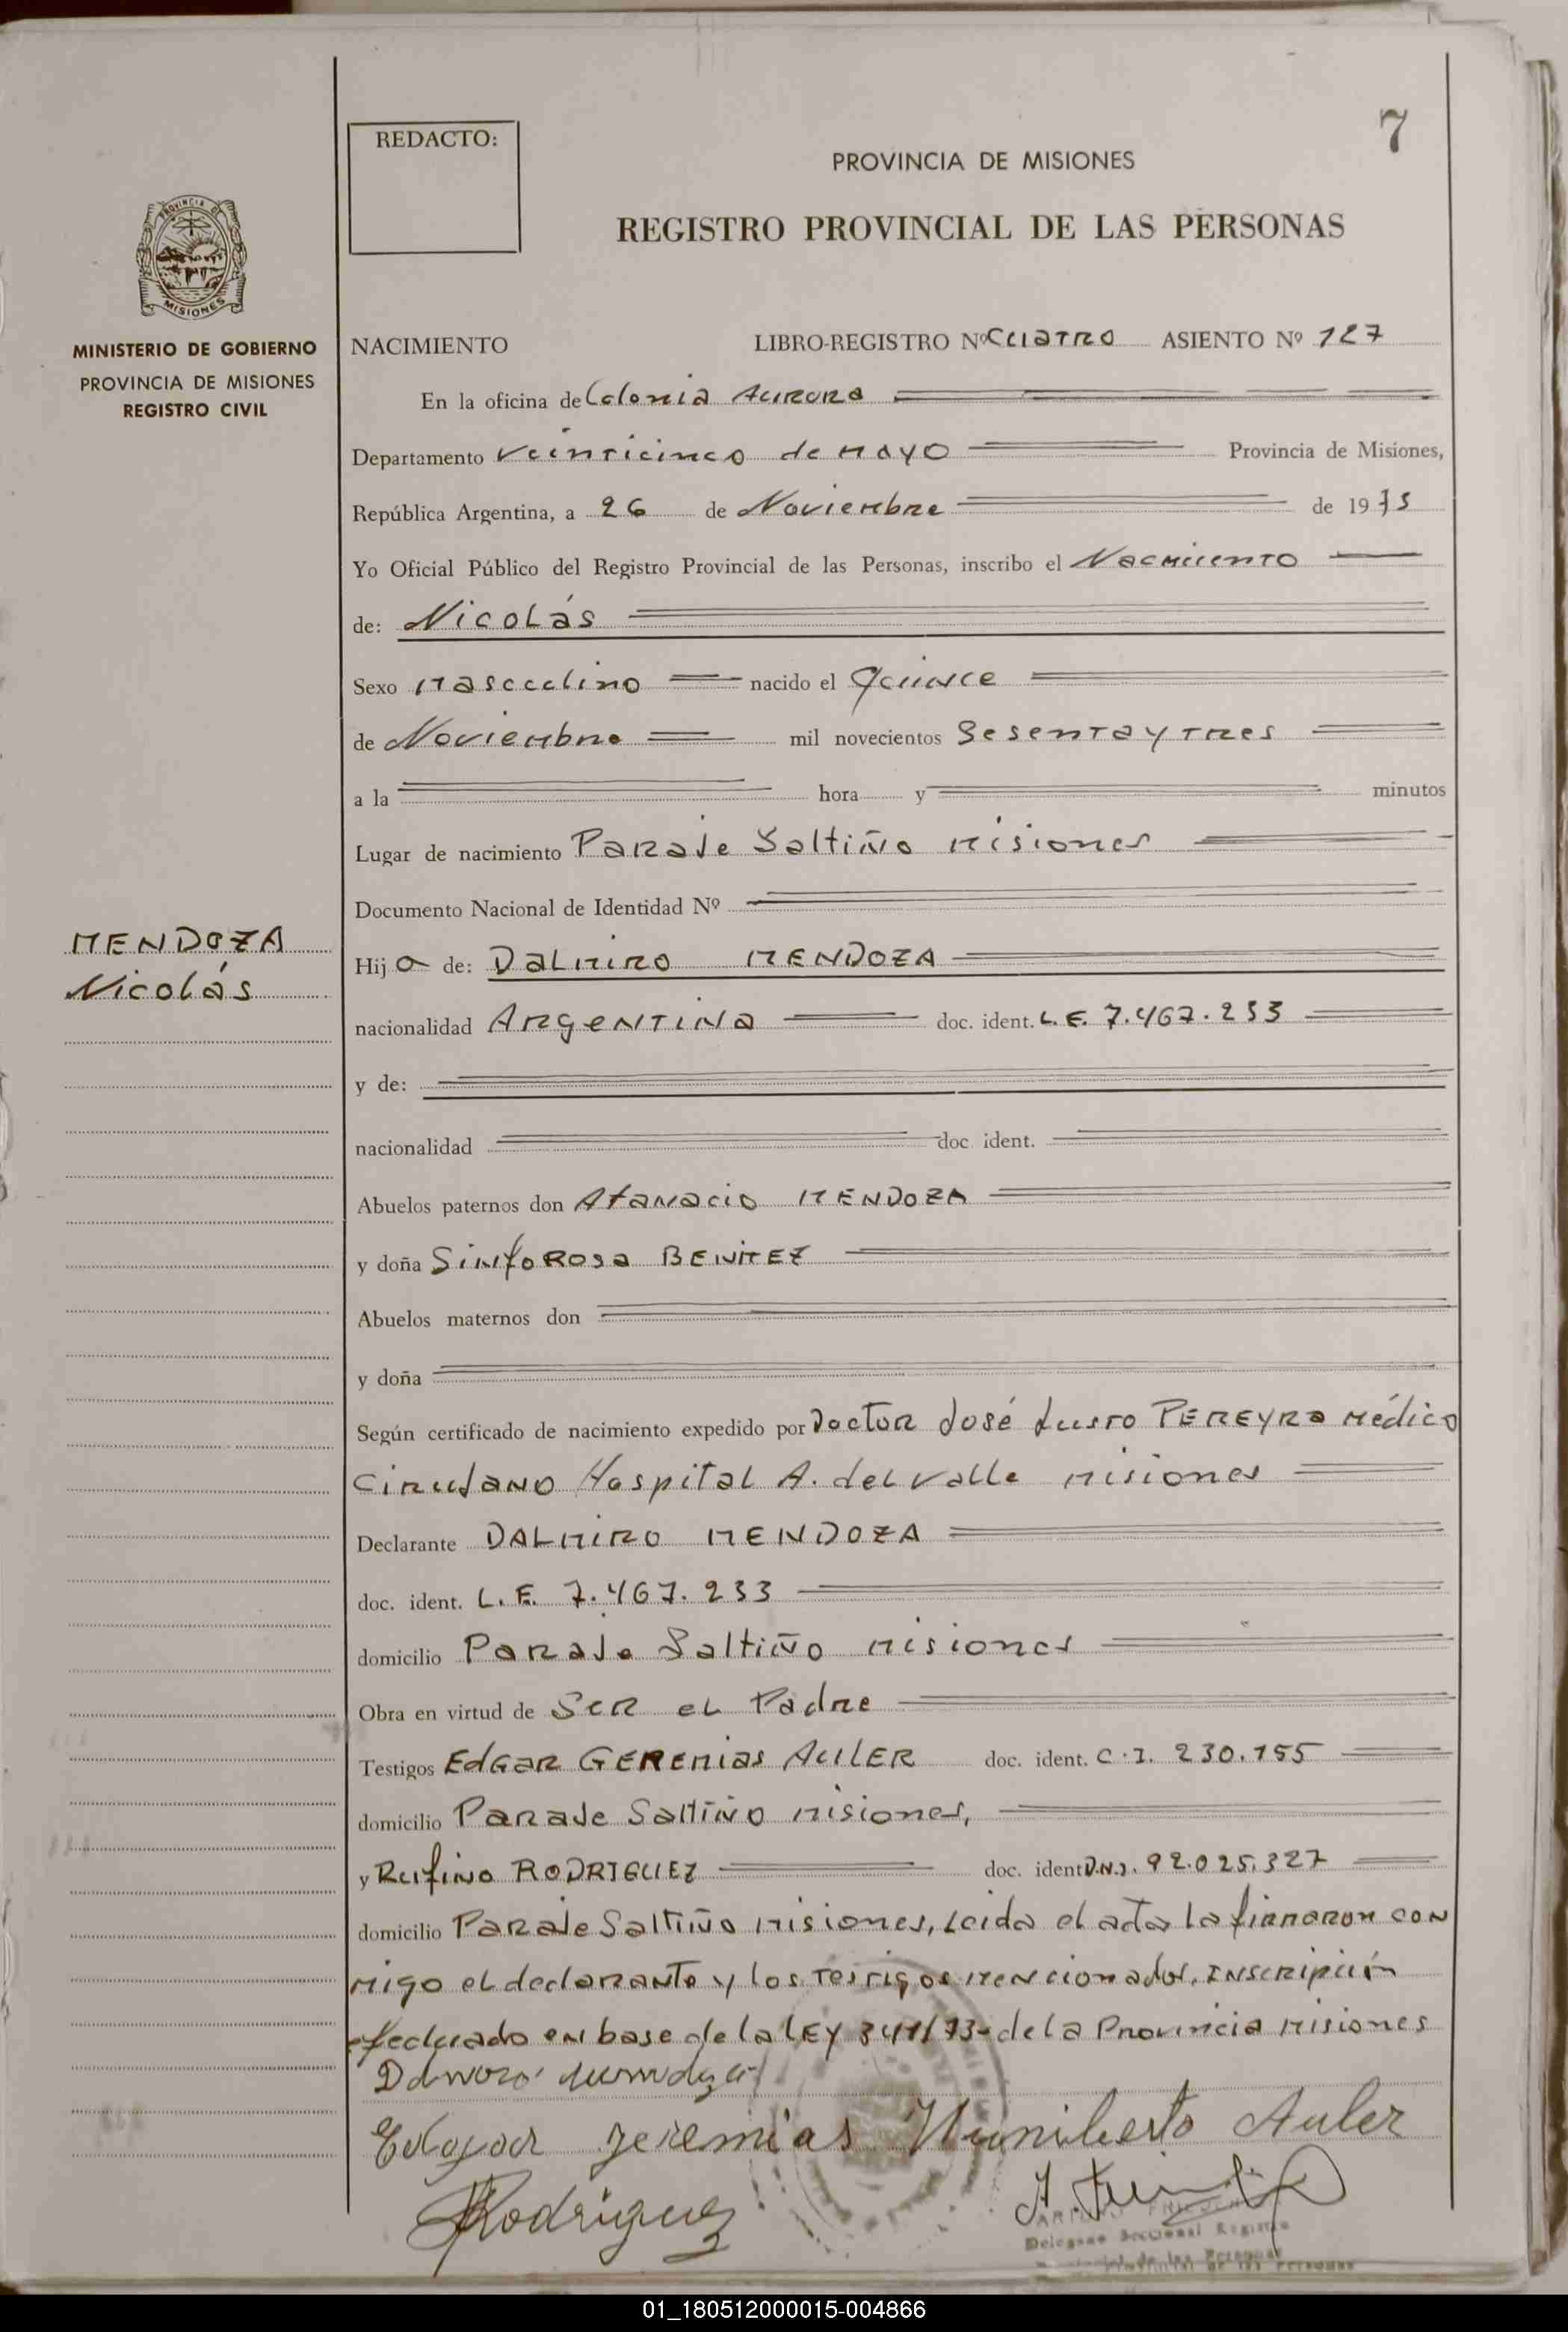 7
REDACTO:
PROVINCIA DE MISIONES
REGISTRO PROVINCIAL DE LAS PERSONAS
PROVINCIA DE
MISIONES
MINISTERIO DE GOBIERNO
PROVINCIA DE MISIONES
REGISTRO CIVIL
NACIMIENTO LIBRO-REGISTRO Nº Cuatro ASIENTO Nº 127
En la oficina de Colonia Aurora
Departamento Veinticinco de Mayo Provincia de Misiones,
República Argentina, a 26 de Noviembre de 1973
Yo Oficial Público del Registro Provincial de las Personas, inscribo el Nacmiento
de: Nicolás
Sexo Masculino nacido el Quince
de Noviembre mil novecientos Sesenta y Tres
a la hora y minutos
Lugar de nacimiento Paraje Saltiño Misiones
Documento Nacional de Identidad Nº
MENDOZA
Nicolás
Hij o de: Dalmiro MENDOZA
nacionalidad Argentina doc. ident. L.E. 7.467.233
y de:
nacionalidad doc. ident.
Abuelos paternos don Atanacio MENDOZA
y doña Sinforosa BENITEZ
Abuelos maternos don
y doña
Según certificado de nacimiento expedido por Doctor José Justo PEREYRA Médico
Cirujano Hospital A. del Valle Misiones
Declarante DALMIRO MENDOZA
doc. ident. L.E. 7.467.233
domicilio Paraje Saltiño Misiones
Obra en virtud de Ser el Padre
Testigos Edgar Geremias AULER doc. ident. C.I. 230.155
domicilio Paraje Saltiño Misiones,
y Rufino RODRIGUEZ doc. ident D.N.I. 92.025.327
domicilio Paraje Saltiño Misiones, Leida el acta la firmaron con
migo el declarante y los Testigos Mencionados, Inscripción
efectuado en base de la LEY 341/73- de la Provincia Misiones
Edgar Jeremias Humberto Auler
Rodriguez
Delegado Seccional Registro
Provincial de las Personas
01_180512000015-004866